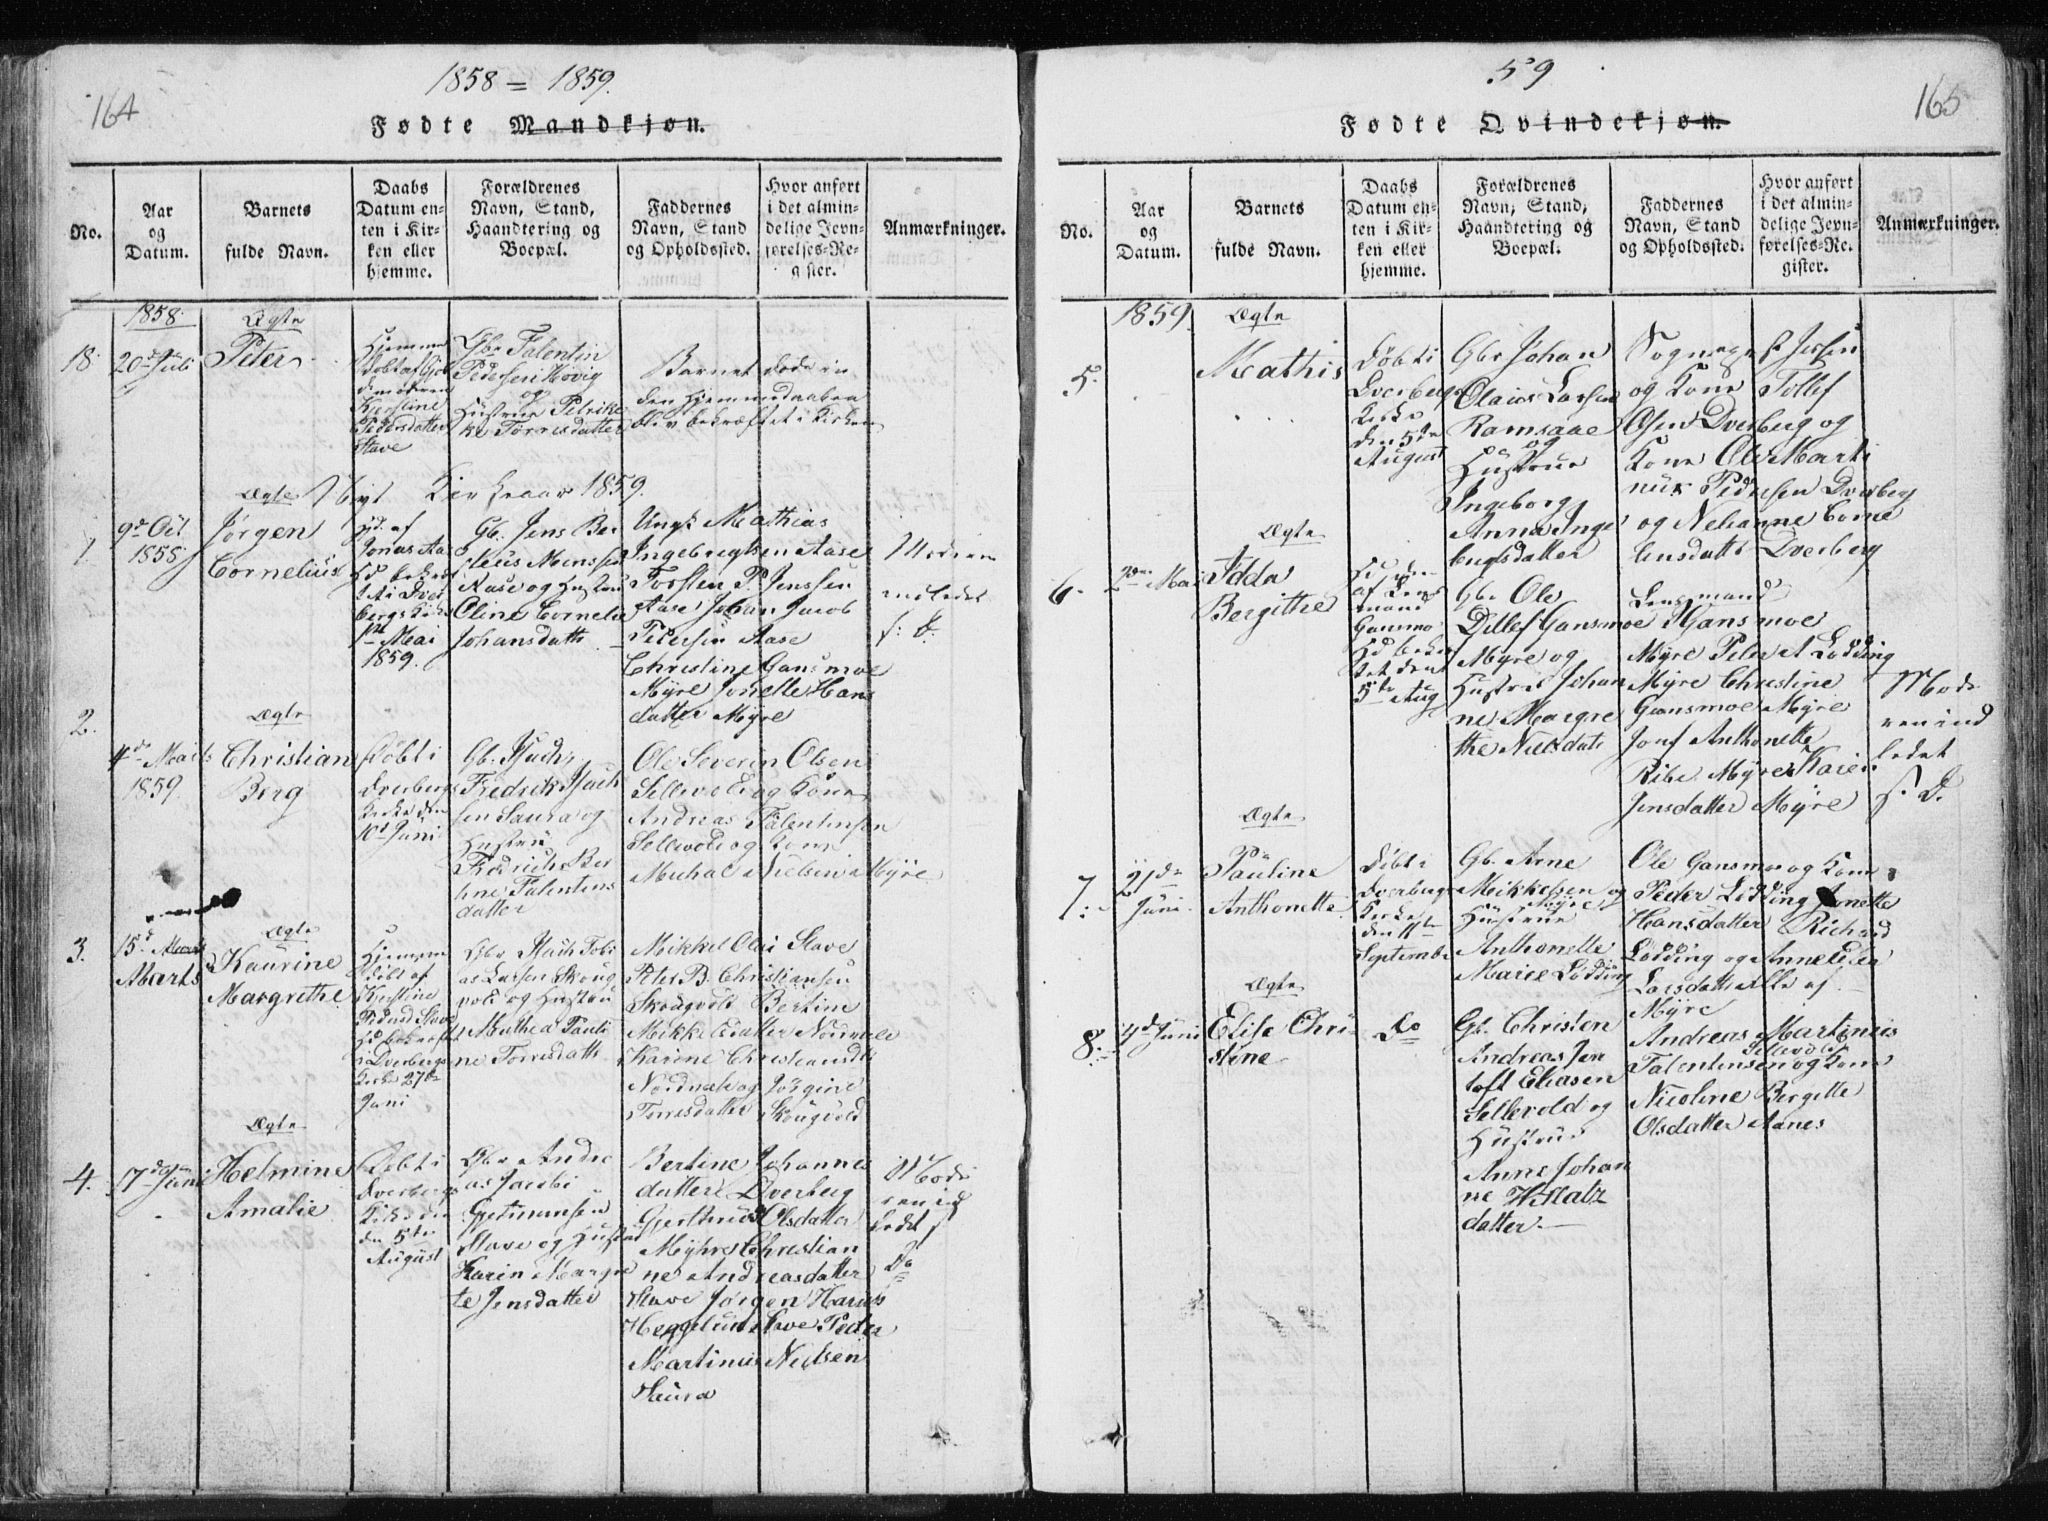 164
1858 = 1859.
Fødte Mandkjøn.
No.
Aar
og
Datum.
Barnets
fulde Navn.
Daabs
Datum en-
ten i Kir-
ken eller
hjemme.
Forældrenes
Navn, Stand,
Haandtering og
Boepæl.
Faddernes
Navn, Stand
og Opholdssted.
Hvor anført
i det almin-
delige Jevn-
førelses-Re-
gister.
Anmærkninger.
1858
Ægte
18
20de Juli
Peter
Hjemme
døbt af
Kirstine
Pedersdatter
Stave
Gbr Falentin
Pedersen Hovig
og
Hustrue Petrike
Torrisdatter
Barnet døde
den Hjemmedaaben
blev bekræftet i Kirken
Nyt Kirkeaar 1859.
1
9de Oct
1858
Ægte
Jørgen
Cornelius
Hd. af
Jonas Aase
Hd bekræf
tet i Dver
bergs Kirke
1ste Mai
1859.
Gb. Jens Ber
Monssen
Aase og Hustru
Oline Cornelia
Johansdatt
Ungk Mathias
Ingebregtsen Aase
Torsten P Jenssen
Aase Johan Jacob
Pedersen Aase
Christine Gansmoe
Myre Jonette Hans
datter Myre
Modren
indledet
s: D:
2.
4de Marts
1859
Ægte
Christian
Berg
Døbt i
Dverbergs
Kirke den
10de Juni
Gb. Isach
Fredrik Isach
sen Saura og
Hustru
Fredrikke Ber
Falentins
datter
Ole Severin Olsen
Sellevold og Kone
Andreas Falentinsen
Sellevold og Kone
Nielsen Myre
3.
15de
Marts
Ægte
Kaurine
Margrethe
Hjemme
døbt af
Kirstine
Stave
Hd bekræftet
i Dverbergs
Kirke 27de
Juni
Gbr Isach Tobi
as Larsen Skoug
vold og Hustru
Mathea Pauli
ne Torrisdatt
Mikkel Olai Stave
Peter B. Christiansen
Skougvold Bertine
Mikkelsdatter Nordmele
Karine Christiansdtr
Nordmele og Jørgine
Torrisdatter Skougvold
4.
17de Juni
Ægte
Helmine
Amalie
Døbt i
Dverbergs
Kirke den
den 5te
August
Gbr Andre
as Jacobi
Stave og Hustru
Karin Margre
te Jensdatter
Bertine Johannes
datter Dverberg
Gjertrud Olsdatter
Myhre Christian
ne Andreasdatter
Stave Jørgen
Stave Peder
Martinus Nielsen
Saura
Mod
ren ind
ledet s
Do
59
165
Fødte Qvindekjøn.
No.
Aar
og
Datum.
Barnets
fulde Navn.
Daabs
Datum en-
ten i Kir-
ken eller
hjemme.
Forældrenes
Navn, Stand,
Haandtering og
Boepæl.
Faddernes
Navn, Stand
og Opholdssted.
Hvor anført
i det almin-
delige Jevn-
førelses-Re-
gister.
Anmærkninger.
1859.
Ægte
5.
Mathis
Døbt i
Dverbergs
Kirke
den 5te
August
Gbr Johan
Olaus Larsen
Ramsaae
og
Hustrue
Ingeborg
Anna Inge
brigtsdatter
Sognepr P Jersin
og Kone Tollef
Olsen Dverberg og
Kone Ole Marti
nus Pedersen Dverberg
og Nehanne Corne
liusdatt Dverberg
6.
2den Mai
Ægte
Idda
Bergithe
af Lens
mand
Gansmo
Hd bekræf
tet den
5te Aug
Gbr Ole
Ditlef Gansmoe
Myre og
Hustrue Johan
ne Margre
the Nielsdatt
Lensmand
Gansmoe
Myre Peter A Lødding
Myre Christine
Gansmoe Myre
Jomf Anthonette
Ribe Myre Karen
Jensdatter Myre
Mode
ren ind
ledet
s. D.
7.
21de
Juni
Ægte
Pauline
Anthonette
Døbt i
Dverbergs
Kirke
September
Gb. Arne
Mikkelsen
Myre og
Hustrue
Anthonette
Marie Lødding
Ole Gansmoe og Kone
Peder Lødding Jonette
Hansdatter Richard
Lødding og Anne
Larsdatter Alle af
Myre
8.
Juni
Ægte
Elise Chri
stine
Do
Gb. Christen
Andreas Jen
toft Eliasen
Sellevold og
Hustrue
Anne Johan
ne
datter
Andreas Martinus
Falentinsen Sellevold og Kone
Nicoline Bergitte
Olsdatter Aanes